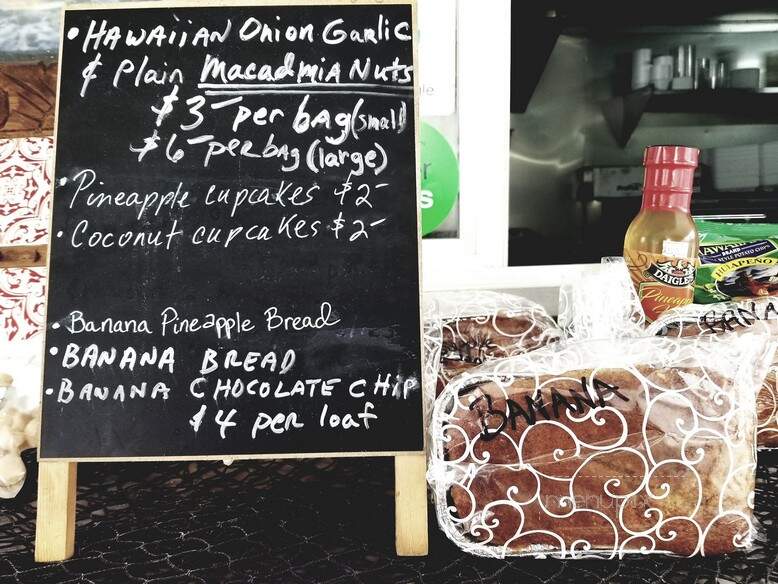 • HAWAiiAN Onion Garlic
& Plain Macadmia Nuts
$3- per bag (small)
$6- per bag (large)
• Pineapple cupcakes $2-
• Coconut cupcakes $2-
• Banana Pineapple Bread
• BANANA BREAD
• BANANA CHOCOLATE CHIP
$4 per loaf
s
DAIGLE'S
Pineapp
HAWAII
BRAND
STYLE POTATO CHIPS
JALAPEÑO
BANA
BANANA
menupix